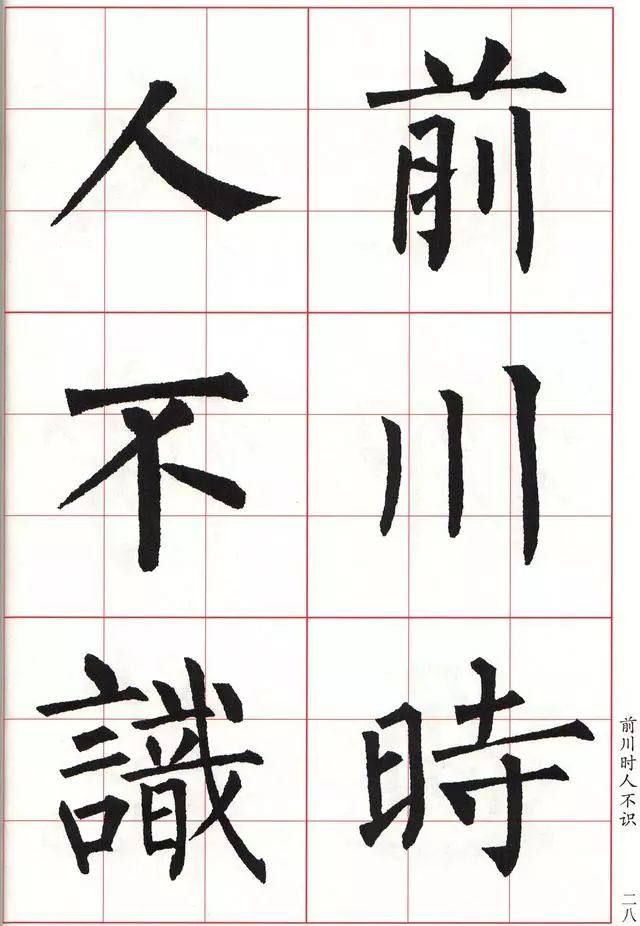 前川時
人不識
前川时人不识
二八